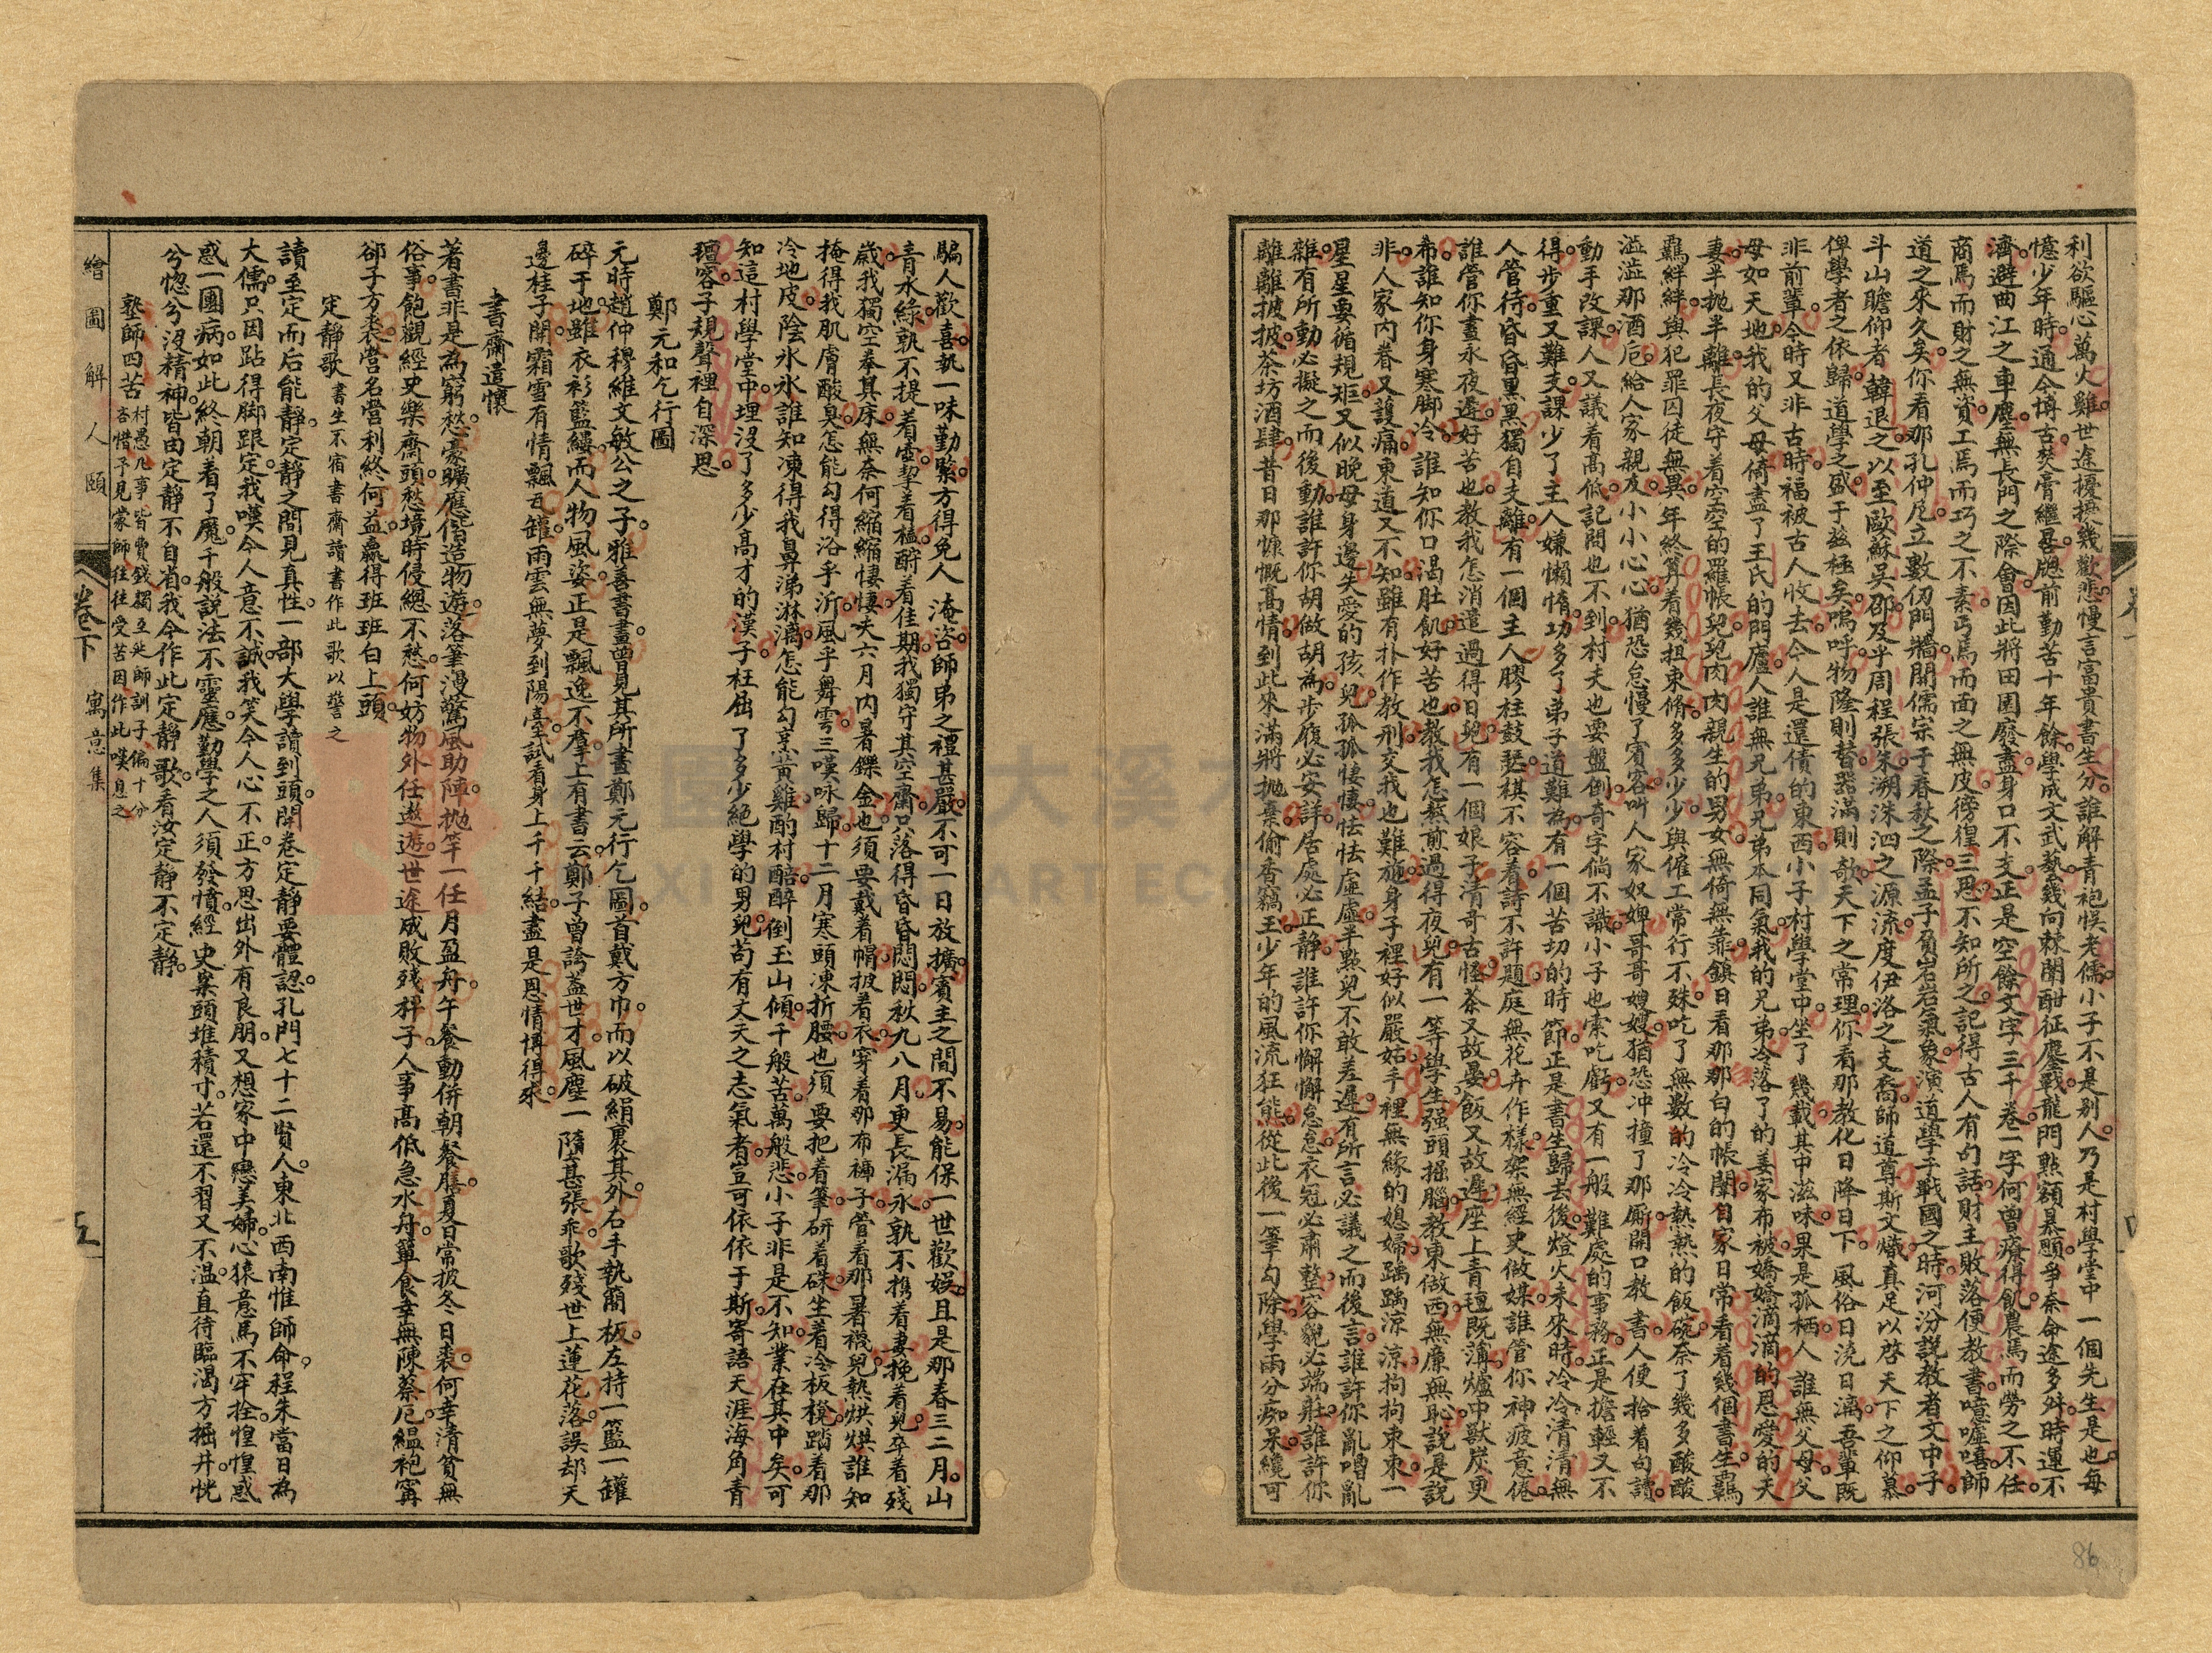 利欲驅心萬火雞世途擾攘幾歡悲慢言富貴書生分誰解青袍悞老儒小子不是別人乃是村學堂中一個先生是也每
憶少年時通今博古焚膏繼晷牕前勤苦十年餘學成文武藝幾向棘闈酣征鏖戰龍門點額暴顋爭奈命途多舛時運不
濟避曲江之車塵無長門之際會因此將田園廢盡身口不支正是空餘文字三千卷一字何曾療得飢農焉而勞之不任
商焉而財之無資工焉而巧之不素丐焉而面之無皮徬徨三思不知所之記得古人有句話財主敗落便教書噫噓嘻師
道之來久矣你看那孔仲尼立數仞門牆開儒宗于春秋之際孟子負岩岩氣象演道學于戰國之時河汾說教者文中子
斗山瞻仰者韓退之以至歐蘇吳邵及乎周程張朱溯洙泗之源流度伊洛之支裔師道尊斯文熾真足以啓天下之仰慕
俾學者之依歸道學之盛于茲極矣嗚呼物隆則替器滿則欹天下之常理你看那教化日降日下風俗日澆日漓吾輩既
非前輩今時又非古時福被古人收去今人是還債的東西小子村學堂中坐了幾載其中滋味果是孤栖人誰無父母父
母如天地我的父母倚盡了王氏的門廬人誰無兄弟兄弟本同氣我的兄弟冷落了的姜家布被嬌嬌滴滴的恩愛的夭
妻半拋半離長夜守着空空的羅帳兒兒肉肉親生的男女無倚無靠鎮日看那那白的帳闈自家日常看着幾個書生羈
羈絆絆與犯罪囚徒無異年終算着幾担束脩多多少少與僱工常行不殊吃了無數的冷冷熱熱的飯碗奈了幾多酸酸
溢溢那酒卮給人家親友小小心心猶恐怠慢了賓客叫人家奴婢哥哥嫂嫂猶恐冲撞了那厮開口教書人便拾着句讀
動手改課人又議着高低記問也不到村夫也要盤倒奇字倘不識小子也索吃虧又有一般難處的事務正是擔輕又不
得步重又難支課少了主人嫌懶惰功多了弟子道難為有一個苦切的時節正是書生歸去後燈火未來時冷冷清清無
人管待昏昏黑黑獨自支離有一個主人膠柱鼓瑟棋不容着詩不許題庭無花卉作樣架無經史做媒誰管你神疲意倦
誰管你晝永夜遲好苦也教我怎消遣過得日兒有一個娘子清哥古怪茶又故晏飯又故遲座上青氊既薄爐中獸炭更
希誰知你身寒脚冷誰知你口渴肚飢好苦也教我怎熬煎過得夜兒有一等學生强頭掘腦教東做西無廉無恥說是說
非人家內眷又護痛東道又不知雖有扑作教刑交我也難施身子裡好似嚴姑手裡無緣的媳婦踽踽凉凉拘拘束束一
星星要循規矩又似晚母身邊失愛的孩兒孤孤悽悽怯怯虛虛半點兒不敢差遲有所言必議之而後言誰許你亂嘈亂
雜有所動必擬之而後動誰許你胡做胡為步履必安詳居處必正靜誰許你懈懈怠怠衣冠必肅整容貌必端莊誰許你
離離披披茶坊酒肆昔日那慷慨高情到此來滿將拋棄偷香竊玉少年的風流狂態從此後一筆勾除學兩分痴呆纔可
騙人歡喜執一味勤緊方得免人淹咨師弟之禮甚嚴不可一日放擴賓主之間不易能保一世歡娛且是那春三二月山
青水綠孰不提着壺挈着榼酹着佳期我獨守其空齋只落得昏昏悶悶秋九八月更長漏永孰不携着妻挽着兒卒着殘
歲我獨空奉其床無奈何縮縮悽悽夫六月內暑鑠金也須要戴着帽披着衣穿着那布褲子管着那暑襪兒熱烘烘誰知
掩得我肌膚酸臭怎能勾得浴乎沂風乎舞雩三嘆咏歸十二月寒頭凍折腰也須要把着筆研着硃生着冷板櫈踏着那
冷地皮陰冰冰誰知凍得我鼻涕淋漓怎能勾烹黃雞酌村醅醉倒玉山傾千般苦萬般悲小子非是不知業在其中矣可
知這村學堂中埋沒了多少高才的漢子枉屈了多少絕學的男兒苟有丈夫之志氣者豈可依依于斯寄語天涯海角青
氊客子規聲裡自深思
鄭元和乞行圖
元時趙仲穆維文敏公之子雅善書畫曾見其所畫鄭元行乞圖首戴方巾而以破絹裹其外右手執簡板左持一籃一罐
碎于地雖衣衫籃縷而人物風姿正是飄逸不羣上有書云鄭子曾誇蓋世才風塵一墮甚張乖歌殘世上蓮花落誤却天
邊桂子開霜雪有情飄瓦罐雨雲無夢到陽臺試看身上千千結盡是恩情博得來
書齋遣懷
著書非是為窮愁豪曠應偕造物遊落筆漫驚風助陣拋竿一任月盈舟午餐動併朝餐膳夏日常披冬日裘何幸清貧無
俗事飽觀經史樂齋頭愁境時侵總不愁何妨物外任遨遊世途成敗殘秤子人事高低急水舟簞食幸無陳蔡厄縕袍甯
卻子方裘營名營利終何益贏得班班白上頭
定靜歌 書生不宿書齋讀書作此歌以警之
讀至定而后能靜定靜之間見真性一部大學讀到頭開卷定靜要體認孔門七十二賢人東北西南惟師命程朱當日為
大儒只因跕得脚跟定我嘆今人意不誠我笑今人心不正方思出外有良朋又想家中戀美婦心猿意馬不牢拴惶惶惑
惑一團病如此終朝着了魔千般說法不靈應勤學之人須發憤經史案頭堆積寸若還不習又不溫直待臨渴方掘井恍
兮惚兮沒精神皆由定靜不自省我今作此定靜歌看汝定靜不定靜
塾師四苦 村愚凡事皆費錢獨至延師訓子偏十分
吝惜予見蒙師往往受苦因作此嘆息之
繪圖解人頤
卷下
寓意集
五
86